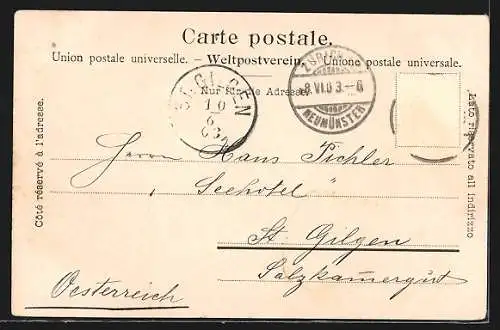 Carte postale.
Union postale universelle. – Weltpostverein. – Unione postale universale.
Nur für die Adresse
ZÜRICH
9.VI.03.–6
NEUMÜNSTER
ST. GILGEN
10
6
03
Côté réservé à l'adresse.
Lato riservato all indirizzo
Herrn Hans Pichler
"Seehotel"
St. Gilgen
Salzkam̅ergut
Oesterreich